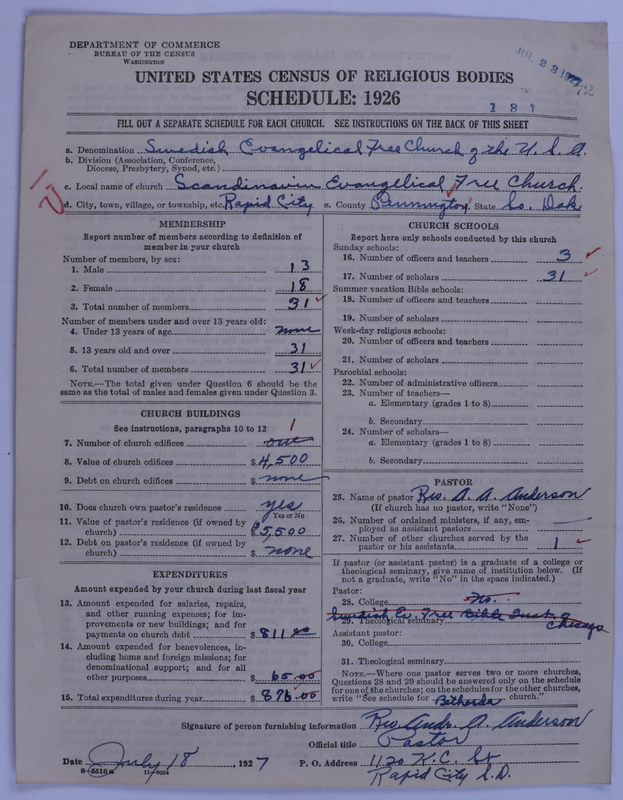 DEPARTMENT OF COMMERCE
BUREAU OF THE CENSUS
WASHINGTON
JUL 28 1927
UNITED STATES CENSUS OF RELIGIOUS BODIES
SCHEDULE: 1926
181
FILL OUT A SEPARATE SCHEDULE FOR EACH CHURCH. SEE INSTRUCTIONS ON THE BACK OF THIS SHEET
a. Denomination Swedish Evangelical Free Church of the U. S. A.
b. Division (Association, Conference, Diocese, Presbytery, Synod, etc.)
c. Local name of church Scandinavin Evangelical Free Church.
d. City, town, village, or township, etc. Rapid City e. County Pennington State So. Dak.
MEMBERSHIP
Report number of members according to definition of member in your church
Number of members, by sex:
1. Male 13
2. Female 18
3. Total number of members 31
Number of members under and over 13 years old:
4. Under 13 years of age none
5. 13 years old and over 31
6. Total number of members 31
NOTE.—The total given under Question 6 should be the same as the total of males and females given under Question 3.
CHURCH BUILDINGS
See instructions, paragraphs 10 to 12
1
7. Number of church edifices one
8. Value of church edifices $4,500
9. Debt on church edifices $ none
10. Does church own pastor's residence yes
Yes or No
11. Value of pastor's residence (if owned by church) $5,500
12. Debt on pastor's residence (if owned by church) $ none
EXPENDITURES
Amount expended by your church during last fiscal year
13. Amount expended for salaries, repairs, and other running expenses; for improvements or new buildings; and for payments on church debt $811.00
14. Amount expended for benevolences, including home and foreign missions; for denominational support; and for all other purposes $ 65.00
15. Total expenditures during year $ 876.00
CHURCH SCHOOLS
Report here only schools conducted by this church
Sunday schools:
16. Number of officers and teachers 3
17. Number of scholars 31
Summer vacation Bible schools:
18. Number of officers and teachers
19. Number of scholars
Week-day religious schools:
20. Number of officers and teachers
21. Number of scholars
Parochial schools:
22. Number of administrative officers
23. Number of teachers—
a. Elementary (grades 1 to 8)
b. Secondary
24. Number of scholars—
a. Elementary (grades 1 to 8)
b. Secondary
PASTOR
25. Name of pastor Rev. A. A. Anderson
(If church has no pastor, write "None")
26. Number of ordained ministers, if any, employed as assistant pastors
27. Number of other churches served by the pastor or his assistants 1
If pastor (or assistant pastor) is a graduate of a college or theological seminary, give name of institution below. (If not a graduate, write "No" in the space indicated.)
Pastor:
28. College No.
Swedish Ev. Free Bible Inst. of Chicago
29. Theological seminary
Assistant pastor:
30. College
31. Theological seminary
NOTE.—Where one pastor serves two or more churches, Questions 28 and 29 should be answered only on the schedule for one of the churches; on the schedules for the other churches, write "See schedule for Betherda church."
Signature of person furnishing information Rev Andr. A. Anderson
Official title Pastor
Date July 18, 1927 P. O. Address 1120 K.C. St
Rapid City S.D.
8-5518a 11-9024